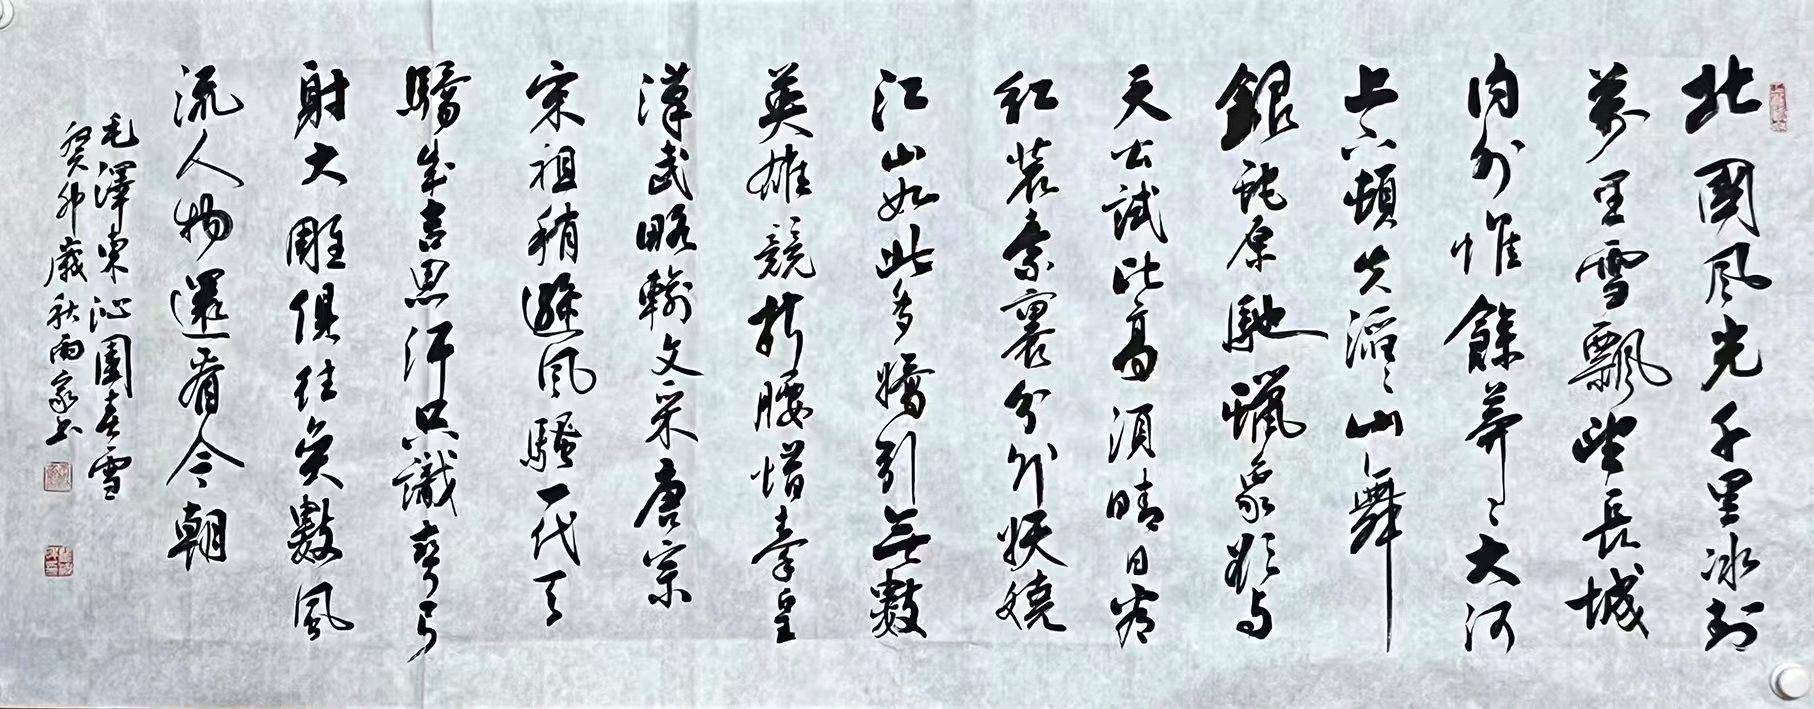 北國风光千里冰封
萬里雪飄望長城
内外惟餘莽〻大河
上下頓失滔〻山舞
銀蛇原馳蠟象欲与
天公試比高須晴日看
红裝素裹分外妖嬈
江山如此多嬌引無數
英雄競折腰惜秦皇
漢武略輸文采唐宗
宋祖稍遜风騷一代天
驕成吉思汗只識彎弓
射大雕俱往矣數風
流人物還看今朝
毛澤東沁園春雪
癸卯歲秋雨家书